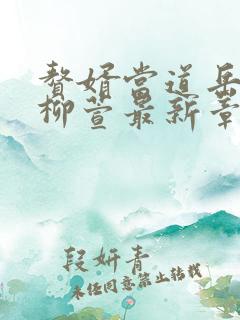 赘婿当道岳
柳萱最新章
段妍青
未经同意禁止转载